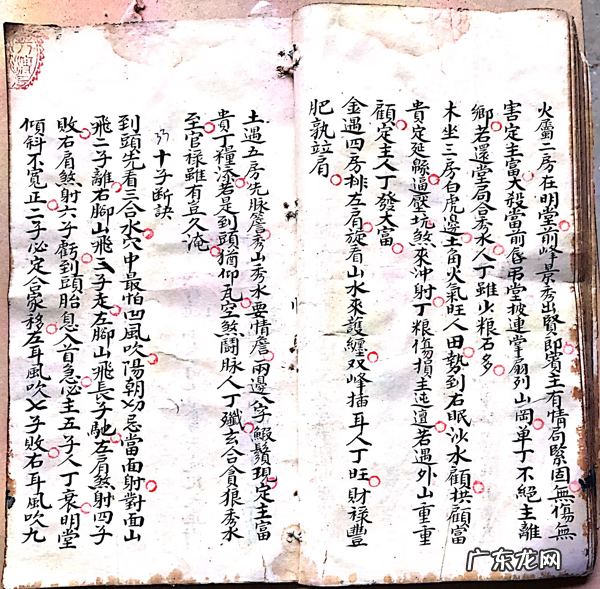 火層二房在明堂前峰景秀出賢郎賓主有情局緊固無傷無
害定主富大殺當前唇弔堂披連掌扇列山岡單丁不絕主離
鄉若還堂局合秀水人丁雖少粮石多
木坐三房白虎邊土角火氣旺人田勢到右眠沙水顧拱顧富
貴定延縣逼壓坑煞來沖射丁粮傷損主迍邅若遇外山重重
顧定主人丁發大富
金遇四房排左肩旋看山水來護纏双峰插耳人丁旺財祿豐
肥孰竝肩
土遇五房先脉簷秀山秀水要情詹兩邊八字蝦鬚現定主富
貴丁糧添若是到頭猶仰瓦空煞鬪脉人丁殲玄合貪狼秀水
至官祿雖有且久淹
十子斷訣
到頭先看三合水穴中最怕凹風吹陽朝切忌當面射對面山
飛二子離右腳山飛三子走左腳山飛長子馳左肩煞射四子
敗右肩煞射六子虧到頭胎息入首急必主五子人丁衰明堂
傾斜不寬正二子必定合家移左耳風吹七子敗右耳風吹九
广东龙网